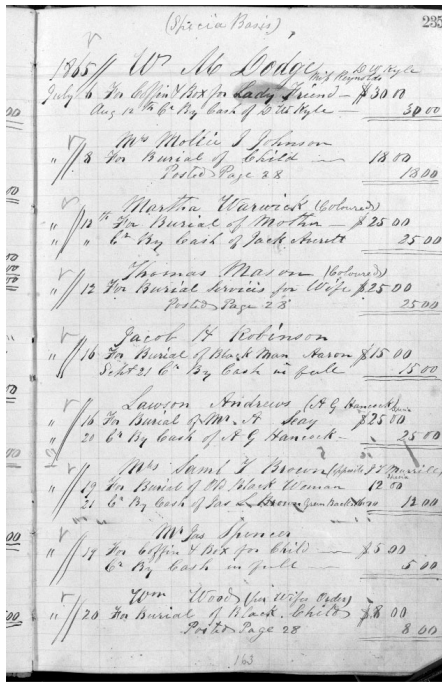 (Specia Basis) 235
1865 // Wm M Dodge Miss Reynolds D W Kyle
July 6 For Coffin & Box for Lady Friend — $30 00
Aug 12th Cr By Cash of D W Kyle — 30 00
Mrs Mollie J Johnson
" // 8 For Burial of Child — 18 00
Posted Page 28 18 00
Martha Warwick (Coloured)
" // 10th For Burial of Mother — $25 00
" // " Cr By Cash of Jack 25 00
Thomas Mason (Coloured)
" // 12 For Burial Services for Wife $25 00
Posted Page 28 25 00
Jacob H Robinson
" // 16 For Burial of Black Man Aaron $15 00
Sept 21 Cr By Cash in full — 15 00
Lawson Andrews (A G Hancock)
" // 16 For Burial of Mrs A Seay $25 00
" // 20 Cr By Cash of A G Hancock — 25 00
Mrs Saml T Brown (opposite J T Murrill)
" // 19 For Burial of Old Black Woman 12 00
" // 21 Cr By Cash of Jas L Brown 12 00
Mr Jas Spencer
" // 19 For Coffin & Box for Child — $5 00
Cr By Cash in full — 5 00
Wm Wood (per Wifes Order)
" // 20 For Burial of Black Child $8 00
Posted Page 28 8 00
163